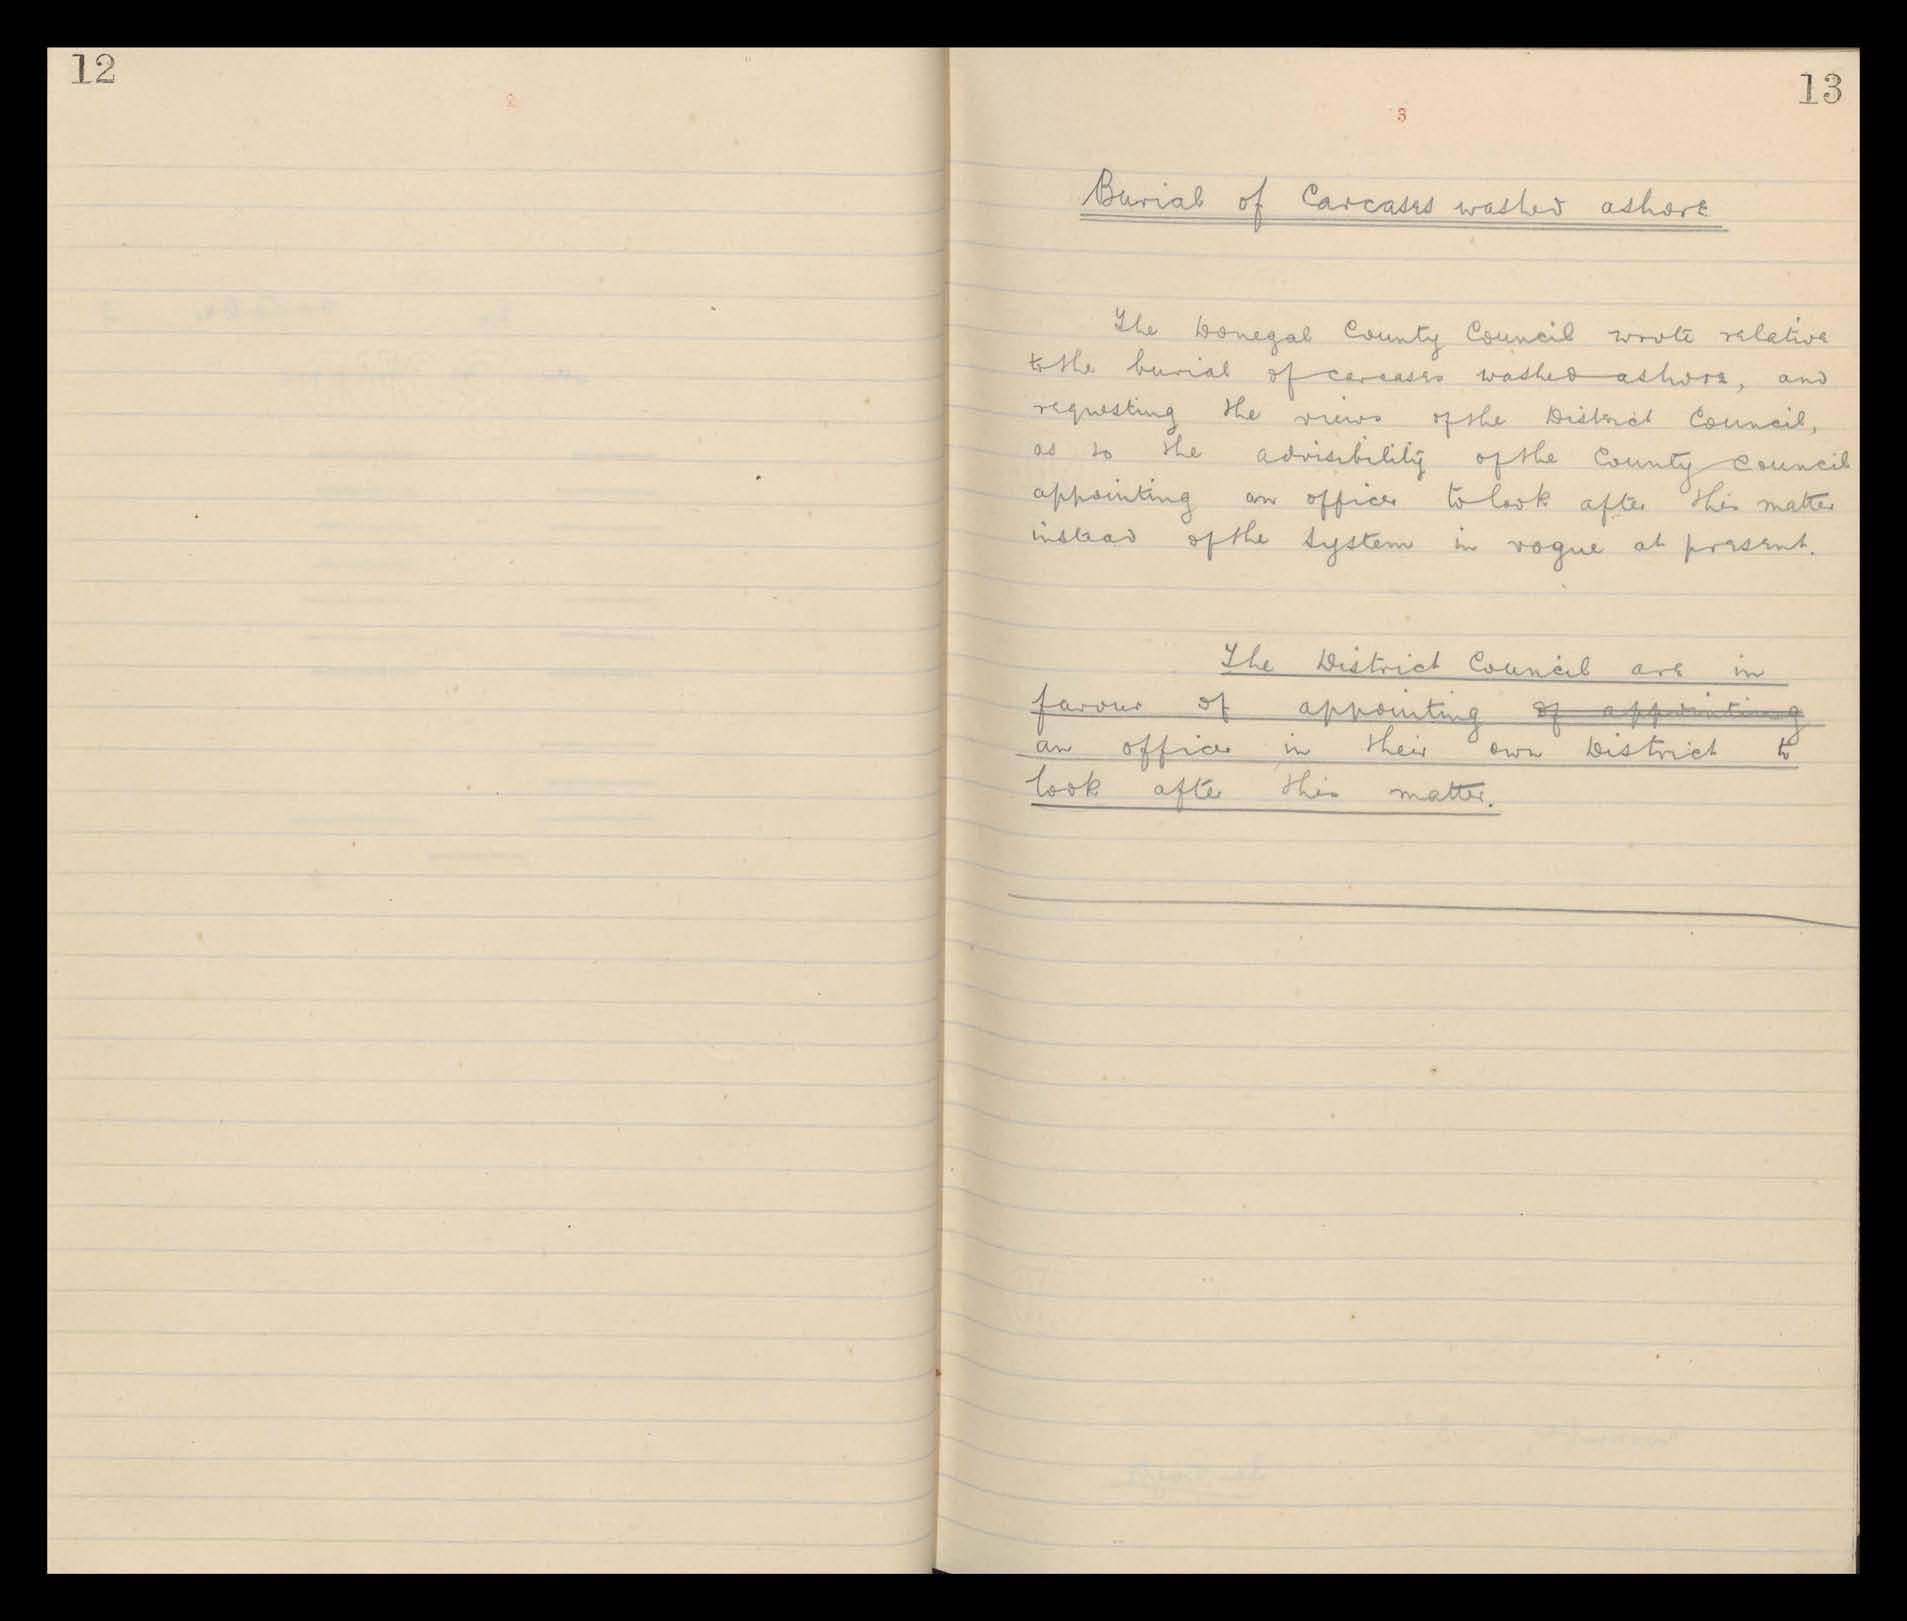 12
2
13
3
Burial of Carcases washed ashore
The Donegal County Council wrote relative
to the burial of carcases washed ashore, and
requesting the views of the District Council,
as to the advisibility of the County Council
appointing an officer to look after this matter
instead of the system in vogue at present.
The District Council are in
favour of appointing of appointing
an officer in their own District to
look after this matter.